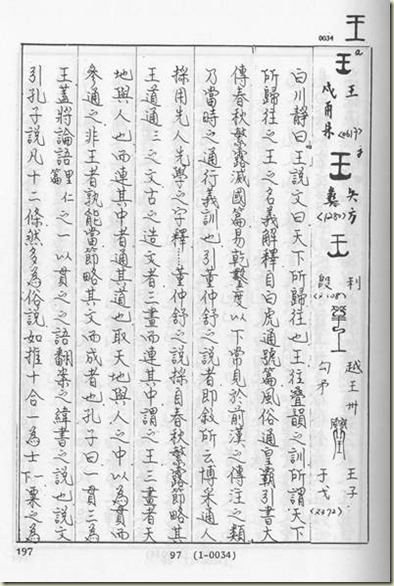 0034
王
王
矢方
<1280>
利
<2108>
越王州
勾矛
王子
于戈
<2372>
白川靜曰王說文曰天下所歸往也王往疊韻之訓所謂天下
所歸往之王之名義解釋自白虎通號篇風俗通皇霸引書大
傳春秋繁露滅國篇易乾鑿度以下常見於前漢之傳注之類
乃當時之通行義訓也引董仲舒之說者即敘所云博采通人
採用先人先學之字釋……董仲舒之說採自春秋繁露節略其
王道通三之文古之造文者三畫而連其中謂之王三畫者天
地與人也而連其中者通其道也取天地與人之中以為貫而
參通之非王者孰能當節略其文而成者也孔子曰一貫三為
王蓋將論語里仁篇之一以貫之之語翻案之緯書之說也說文
引孔子說凡十二條然多為俗說如推十合一為士下一粟之為
197
97 (1-0034)